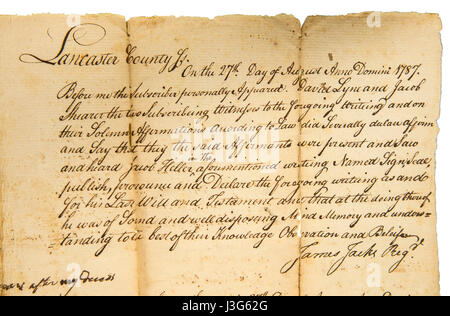 Lancaster County Ss.
On the 27th Day of August Anno Domini 1787.
Before me the Subscriber personally Appeared David Lyne and Jacob
Shearer the two Subscribing Witnesses to the foregoing Writing and on
their Solemn Affirmations According to Law did Severally declare Affirm
and Say that they the said Affirmants were present and Saw
and heard Jacob Hiller aforementioned writing Named Sign, Seal
The
publish, pronounce and Declare the foregoing writing as and
for his Last Will and Testament and that at the doing thereof
he was of Sound and well disposing Mind Memory and unders=
tanding to the best of their Knowledge Observation and Belief
James Jacks Regr.
after my Decease
alamy
Image ID: D3G62G
www.alamy.com